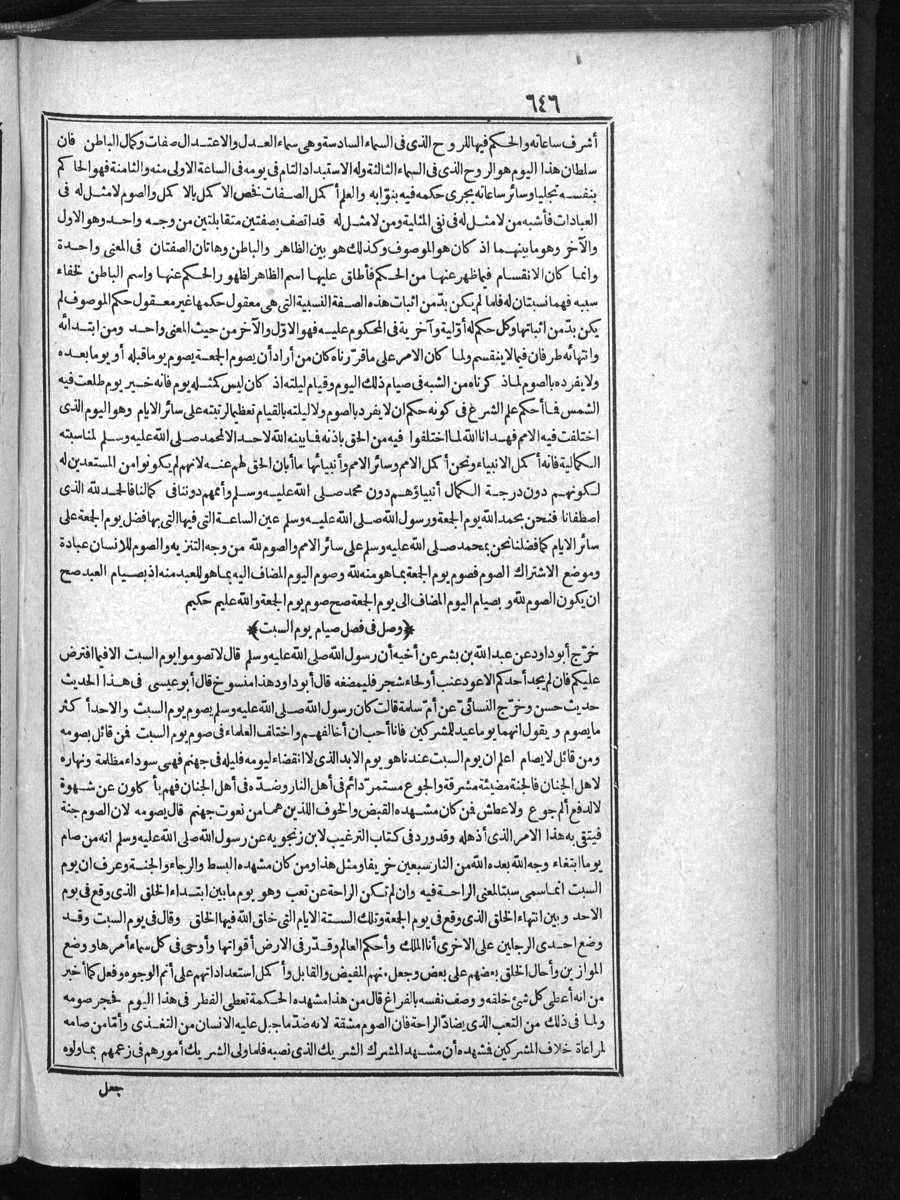 ٦٤٦
أشرف ساعاته والحكم فيها للروح الذي في السماء السادسة وهي سماء العدل والاعتدال صفات وكمال الباطن فان
سلطان هذا اليوم هو الروح الذي في السماء الثالثة وله الاستبداد التام في يومه في الساعة الاولى منه والثامنة فهو الحاكم
بنفسه تجليا وسائر ساعاته يجرى حكمه فيه بنوّابه والعلم أكمل الصفات نخص الاكمل بالاكمل والصوم لا مثل له في
العبادات فأشبه من لا مثل له في نفي المثلية ومن لا مثل له قد اتصف بصفتين متقابلتين من وجه واحد وهو الاول
والآخر وهو ما بينهما اذ كان هو الموصوف وكذلك هو بين الظاهر والباطن وهاتان الصفتان في المعنى واحدة
وانما كان الانقسام فيما ظهر عنها من الحكم فأطلق عليها اسم الظاهر لظهور الحكم عنها واسم الباطن لخفاء
سببه فهما نسبتان له فلما لم يكن بدّ من اثبات هذه الصفة النسبية التي هي معقول حكمها غير معقول حكم الموصوف لم
يكن بدّ من اثباتها وكل حكم له أوّلية وآخرية في المحكوم عليه فهو الاوّل والآخر من حيث المعنى واحد ومن ابتدائه
وانتهائه طرفان فيما لا ينقسم ولما كان الامر على ما قرّرناه كان من أراد أن يصوم الجمعة يصوم يوما قبله أو يوما بعده
ولا يفرده بالصوم لما ذكرناه من الشبه في صيام ذلك اليوم وقيام ليلته اذ كان ليس كمثله يوم فانه خير يوم طلعت فيه
الشمس فما أحكم علم الشرع في كونه حكم ان لا يفرد بالصوم ولا ليلته بالقيام تعظيما لرتبته على سائر الايام وهو اليوم الذي
اختلفت فيه الامم فهدانا الله لما اختلفوا فيه من الحق باذنه فما بينه الله لاحد الا لمحمد صلى الله عليه وسلم لمناسبته
الكمالية فانه أكمل الانبياء ونحن أكمل الامم وسائر الامم وأنبيائها ما أبان الحق لهم عنه لانهم لم يكونوا من المستعدين له
لكونهم دون درجة الكمال أنبياؤهم دون محمد صلى الله عليه وسلم وأممهم دوننا في كمالنا فالحمد لله الذي
اصطفانا فنحن بحمد الله يوم الجمعة ورسول الله صلى الله عليه وسلم عين الساعة التي فيها التي بها فضل يوم الجمعة على
سائر الايام كما فضلنا نحن بمحمد صلى الله عليه وسلم على سائر الامم والصوم لله من وجه التنزيه والصوم للانسان عبادة
وموضع الاشتراك الصوم فصوم يوم الجمعة بما هو منه لله وصوم اليوم المضاف اليه بما هو للعبد منه اذ بصيام العبد صح
ان يكون الصوم لله وبصيام اليوم المضاف الى يوم الجمعة صح صوم يوم الجمعة والله عليم حكيم
﴿وصل في فصل صيام يوم السبت﴾
خرّج أبو داود عن عبد الله بن بشر عن أخيه أن رسول الله صلى الله عليه وسلم قال لا تصوموا يوم السبت الا فيما افترض
عليكم فان لم يجد أحدكم الا عود عنب أو لحاء شجر فليمضغه قال أبو داود هذا منسوخ قال أبو عيسى في هذا الحديث
حديث حسن وخرّج النسائيّ عن أمّ سلمة قالت كان رسول الله صلى الله عليه وسلم يصوم يوم السبت والاحد أكثر
ما يصوم ويقول انهما يوما عيد للمشركين فانا أحب ان أخالفهم واختلف العلماء في صوم يوم السبت فمن قائل بصومه
ومن قائل لا يصام اعلم ان يوم السبت عندنا هو يوم الابد الذي لا انقضاء ليومه فليله في جهنم فهي سوداء مظلمة ونهاره
لاهل الجنان فالجنة مضيئة مشرقة والجوع مستمرّ دائم في أهل النار وضدّه في أهل الجنان فهم يأكلون عن شهوة
لا لدفع ألم جوع ولا عطش فمن كان مشهده القبض والخوف اللذين هما من نعوت جهنم قال يصومه لان الصوم جنة
فيتقى به هذا الامر الذي أذهله وقد ورد في كتاب الترغيب لابن زنجويه عن رسول الله صلى الله عليه وسلم انه من صام
يوما ابتغاء وجه الله بعده الله من النار سبعين خريفا ومثل هذا ومن كان مشهده البسط والرجاء والجنة وعرف ان يوم
السبت انما سمى سبتا لمعنى الراحة فيه وان لم تكن الراحة عن تعب وهو يوم ما بين ابتداء الخلق الذي وقع في يوم
الاحد وبين انتهاء الخلق الذي وقع في يوم الجمعة وتلك الستة الايام التي خلق الله فيها الخلق وقال في يوم السبت وقد
وضع احدى الرجلين على الاخرى أنا الملك وأحكم العالم وقدّر في الارض أقواتها وأوحى في كل سماء أمرها ووضع
الموازين وأحال الخلق بعضهم على بعض وجعل منهم المفيض والقابل وأكمل استعداداتهم على أتم الوجوه وفعل كما أخبر
من انه أعطى كل شئ خلقه ووصف نفسه بالفراغ قال من هذا مشهده الحكمة تعطى الفطر في هذا اليوم فحجر صومه
ولما في ذلك من التعب الذي يضادّ الراحة فان الصوم مشقة لانه ضدّ ما جبل عليه الانسان من التغذى وأمّا من صامه
لمراعاة خلاف المشركين فشهده أن مشهد المشرك الشريك الذي نصبه فلما ولى الشريك أمورهم في زعمهم بما ولوه
جعل